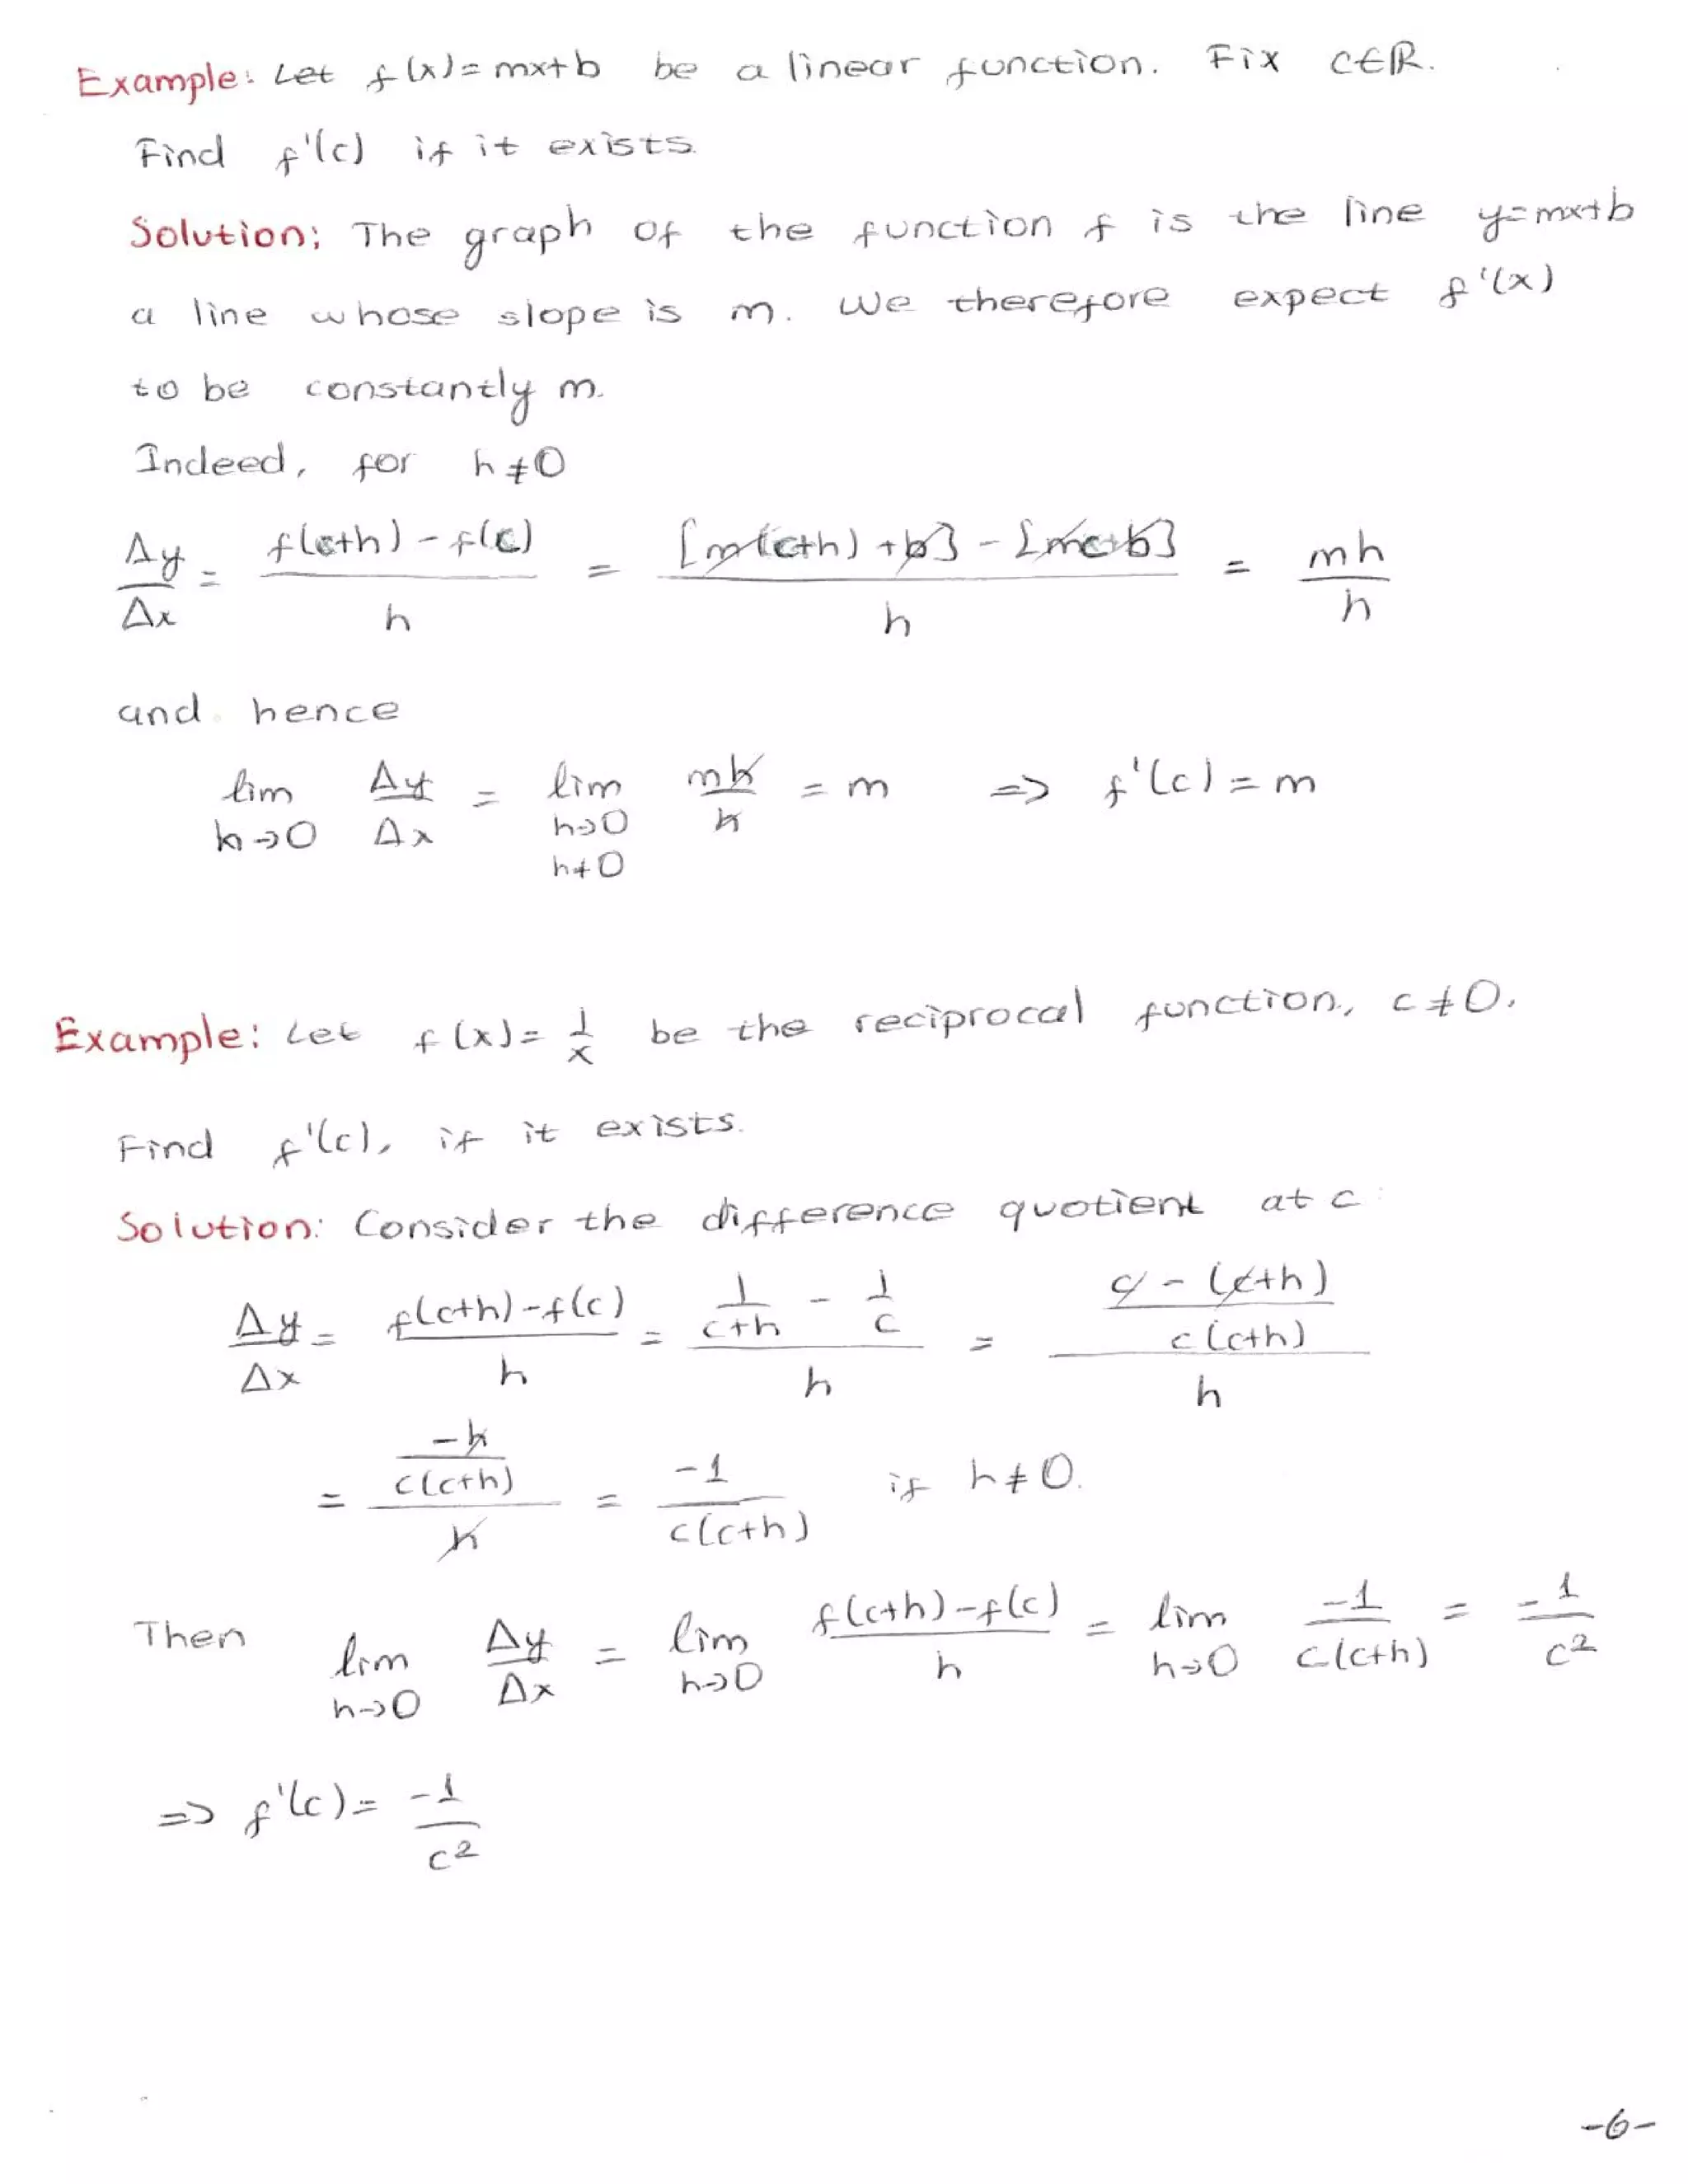 Example: Let f(x)= mx+b be a linear function. Fix c∈ℝ.
Find f'(c) if it exists.
Solution: The graph of the function f is the line y=mx+b
a line whose slope is m. We therefore expect f'(x)
to be constantly m.
Indeed, for h≠0
Δy/Δx = (f(c+h) - f(c))/h = ([m(c+h)+b] - [mc+b])/h = mh/h
and hence
lim h→0 Δy/Δx = lim h→0 h≠0 mh/h = m => f'(c) = m
Example: Let f(x)= 1/x be the reciprocal function, c≠0.
Find f'(c), if it exists.
Solution: Consider the difference quotient at c
Δy/Δx = (f(c+h)-f(c))/h = (1/(c+h) - 1/c)/h = ((c - (c+h))/(c(c+h)))/h
= (-h/(c(c+h)))/h = -1/(c(c+h)) if h≠0.
Then lim h→0 Δy/Δx = lim h→0 (f(c+h)-f(c))/h = lim h→0 -1/(c(c+h)) = -1/c²
=> f'(c) = -1/c²
-6-